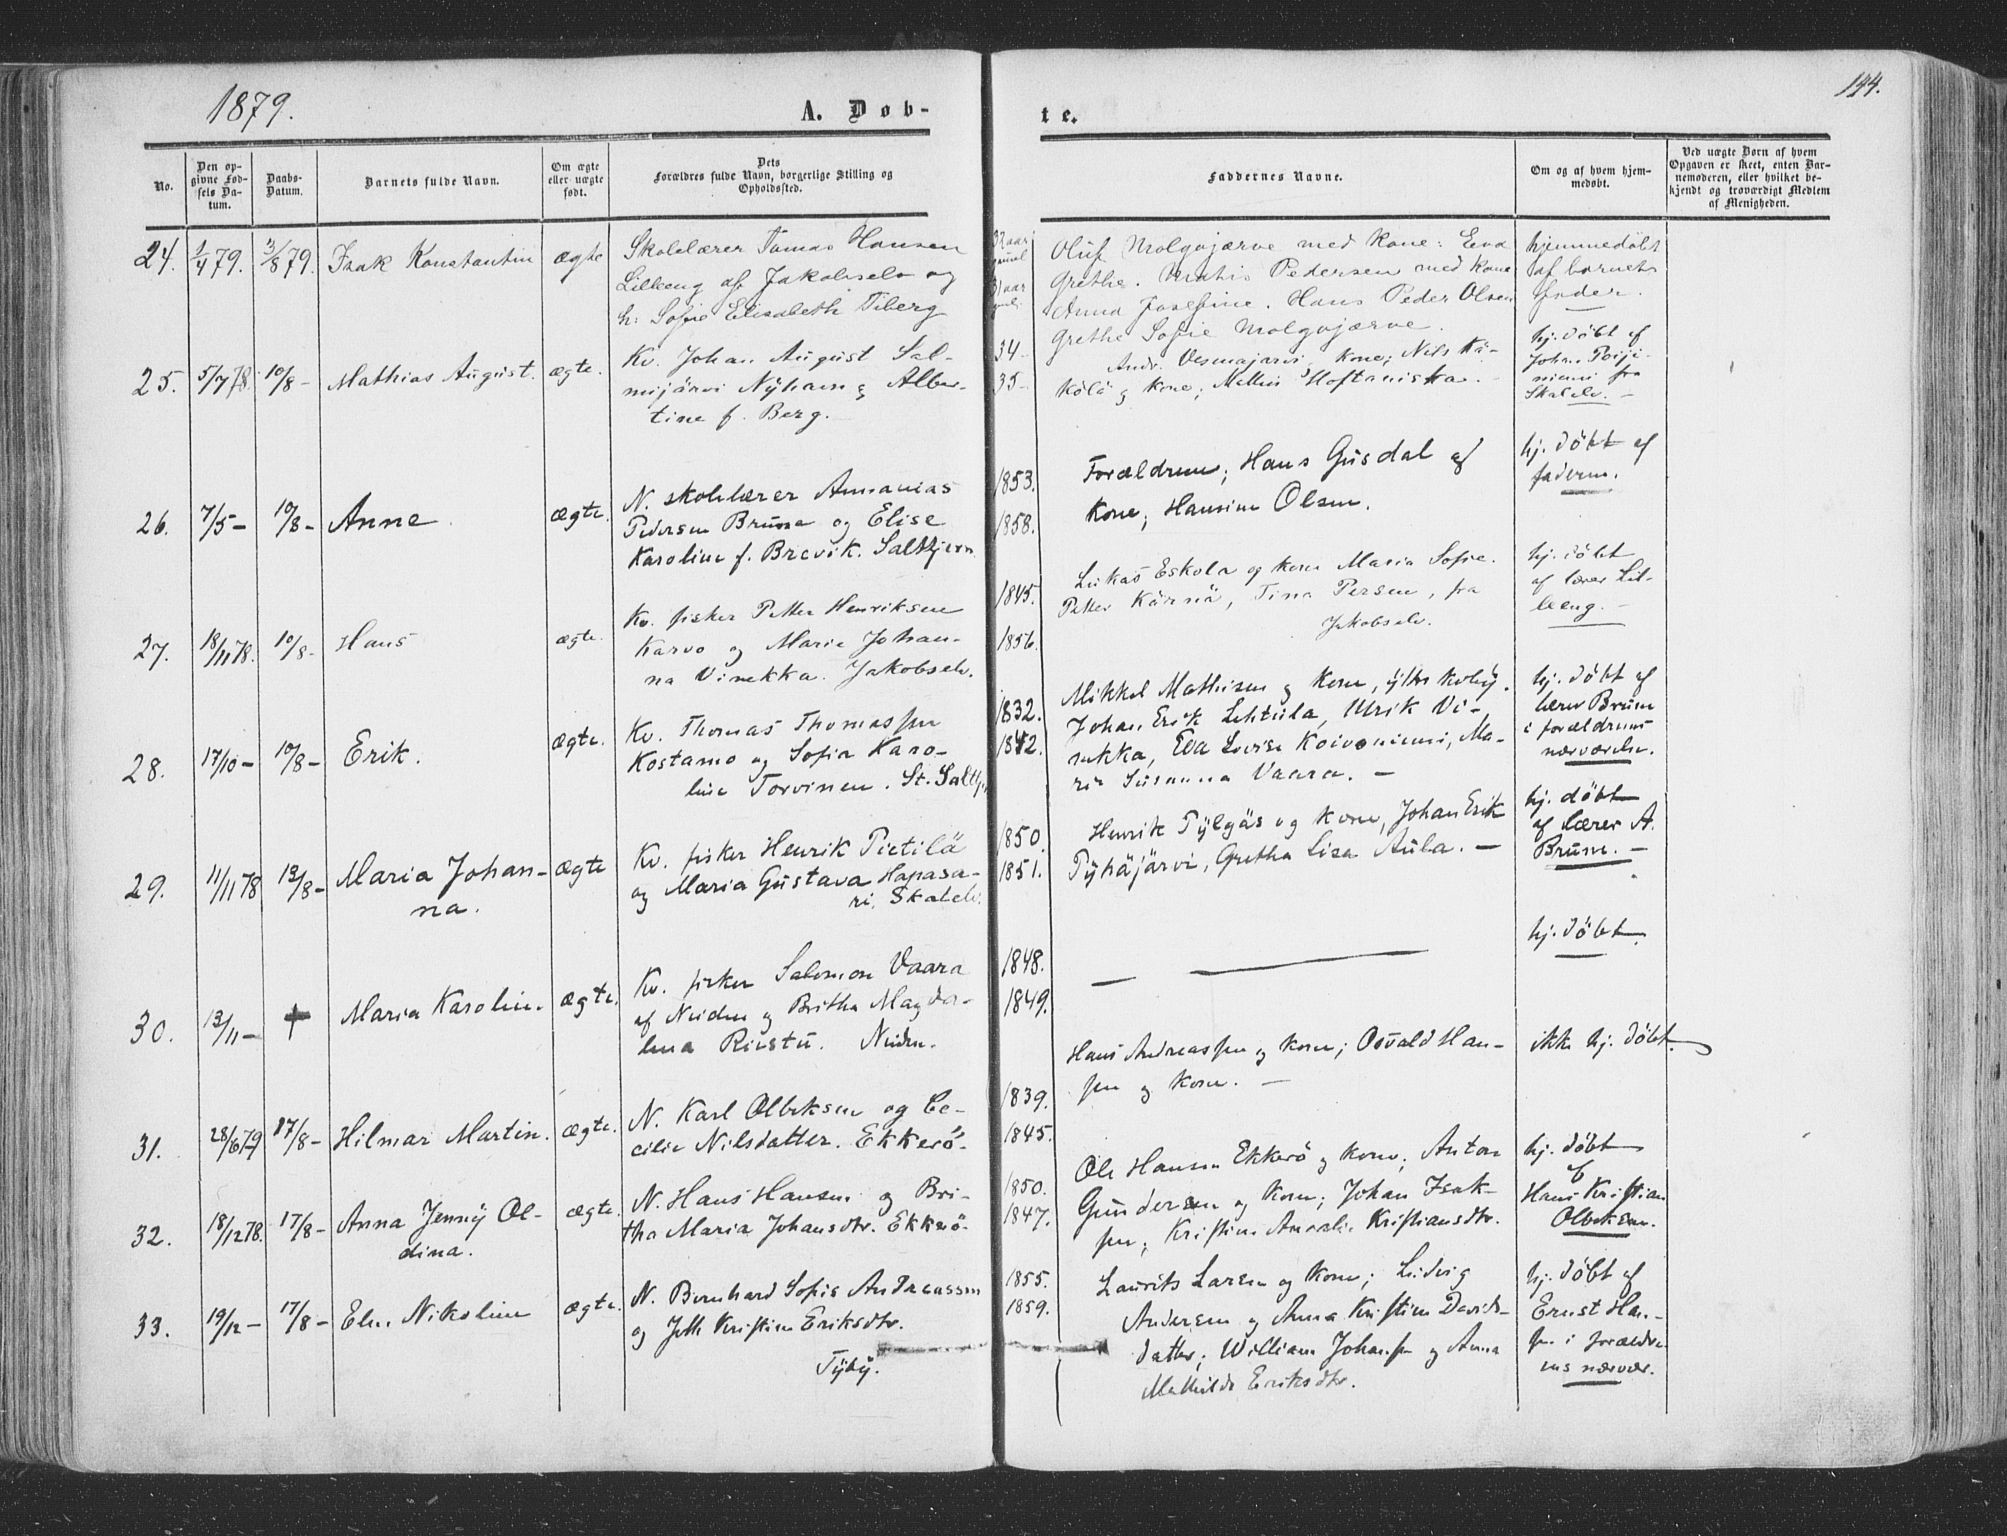 1879.
A. Døb-
te.
144.
No.
Den op-
givne Fød-
sels Da-
tum.
Daabs-
Datum.
Barnets fulde Navn.
Om ægte
eller uægte
født.
Dets
Forældres fulde Navn, borgerlige Stilling og
Opholdssted.
Faddernes Navne.
Om og af hvem hjem-
medøbt.
Ved uægte Børn af hvem
Opgaven er skeet, enten Bar-
nemoderen, eller hvilket be-
kjendt og troværdigt Medlem
af Menigheden.
24. 1/4 79. 3/8 79. Isak Konstantin ægte
Skolelærer Tomas Hansen
Lilleeng af Jakobselv og
h: Sofie Elisabeth Tiberg
Oluf Molgojærve med Kone: Eva
Grethe. Matis Pedersen med Kone
Anna Josefine. Hans Peder Olsen
Grethe Sofie Molgojærve.
hjemmedøbt
af barnets
fader.
25. 5/7 78. 10/8 - Mathias August. ægte.
Kv. Johan August Sal-
mijärvi Nÿhavn & Alber-
tine f. Berg.
34-
35-
Andr. Vesmajarvi & Kone; Nils Kä-
kölä & Kone; Mathis Hoftaniska. -
hj. døbt af
Johan
niemi fra
Skalelv. -
26. 7/5 - 10/8 - Anne. ægte.
N. skolelærer Annanias
Pedersen Bruse og Elise
Karoline f. Brevik. Saltkjern.
1853.
1858.
Forældrene; Hans Gusdal og
Kone; Hansine Olsen.
hj. døbt af
faderen.
27. 18/11 78. 10/8 - Hans ægte.
Kv. fisker Petter Henriksen
Karvo og Maria Johan-
na Vinekka. Jakobselv.
1845.
1856.
Lukas Eskola og kone Maria Sofie.
Petter Kärnä, Tina Persen, fra
Jakobselv.
hj. døbt
af lærer Lil-
leeng. -
28. 17/10 - 10/8 - Erik. ægte.
Kv. Thomas Thomassen
Kostamo og Sofia Karo-
line Torvinen. St. Saltfj.
1832.
1842.
Mikkel Mathisen & Kone, ÿtter Kobÿ.
Johan Erik Lehtula, Ulrik Vi-
nekka, Eva Lovisa Koivoniemi, Ma-
ria Susanna Vaara. -
hj. døbt af
lærer Brune
i forældrenes
nærværelse.
29. 11/11 78 12/8 - Maria Johan-
na. ægte
Kv. fisker Henrik Pietilä
og Maria Gustava Hapasa-
ri. Skalelv.
1850.
1851.
Henrik Pÿlgäs og Kone, Johan Erik
Pÿhäjärvi, Gretha Lisa Aula. -
hj. døbt
af lærer A.
Brune. -
30. 13/11 - + Maria Karolin. ægte.
Kv. fisker Salomon Vaara
af Neiden & Britha Magda-
lena Riestü. Neiden.
1848.
1849.
hj. døbt.
31. 28/6 79 17/8 - Hilmar Martin. ægte.
N. Karl Olbeksen og Ce-
cilie Nilsdatter. Ekkerö.
1839.
1845.
Hans Andreassen & Kone; Osvald Han-
sen & Kone. -
ikke hj. døbt.
32. 18/12 78. 17/8 - Anna Jennÿ Ol-
dina. ægte.
N. Hans Hansen & Bri-
tha Maria Johansdtr. Ekkerö.
1850.
1847.
Ole Hansen Ekkerö & Kone; Anton
Gundersen & Kone; Johan Isak-
sen; Kristine Amalie Kristiansdtr.
hj. døbt
af
Hans Kristian
Olbeksen.
33. 19/12 - 17/8 - Elen Nikoline ægte.
N. Bernhard Sofis Andreassen
og Kristine Eriksdtr.
Tÿbÿ.
1855.
1859.
Laurits Larsen og Kone; Ludvig
Andersen & Anna Kristine Davids-
datter; William Johansen & Anna
Mathilde Eriksdtr.
hj. døbt af
Ernst Han-
sen i forældre-
nes nærvær.